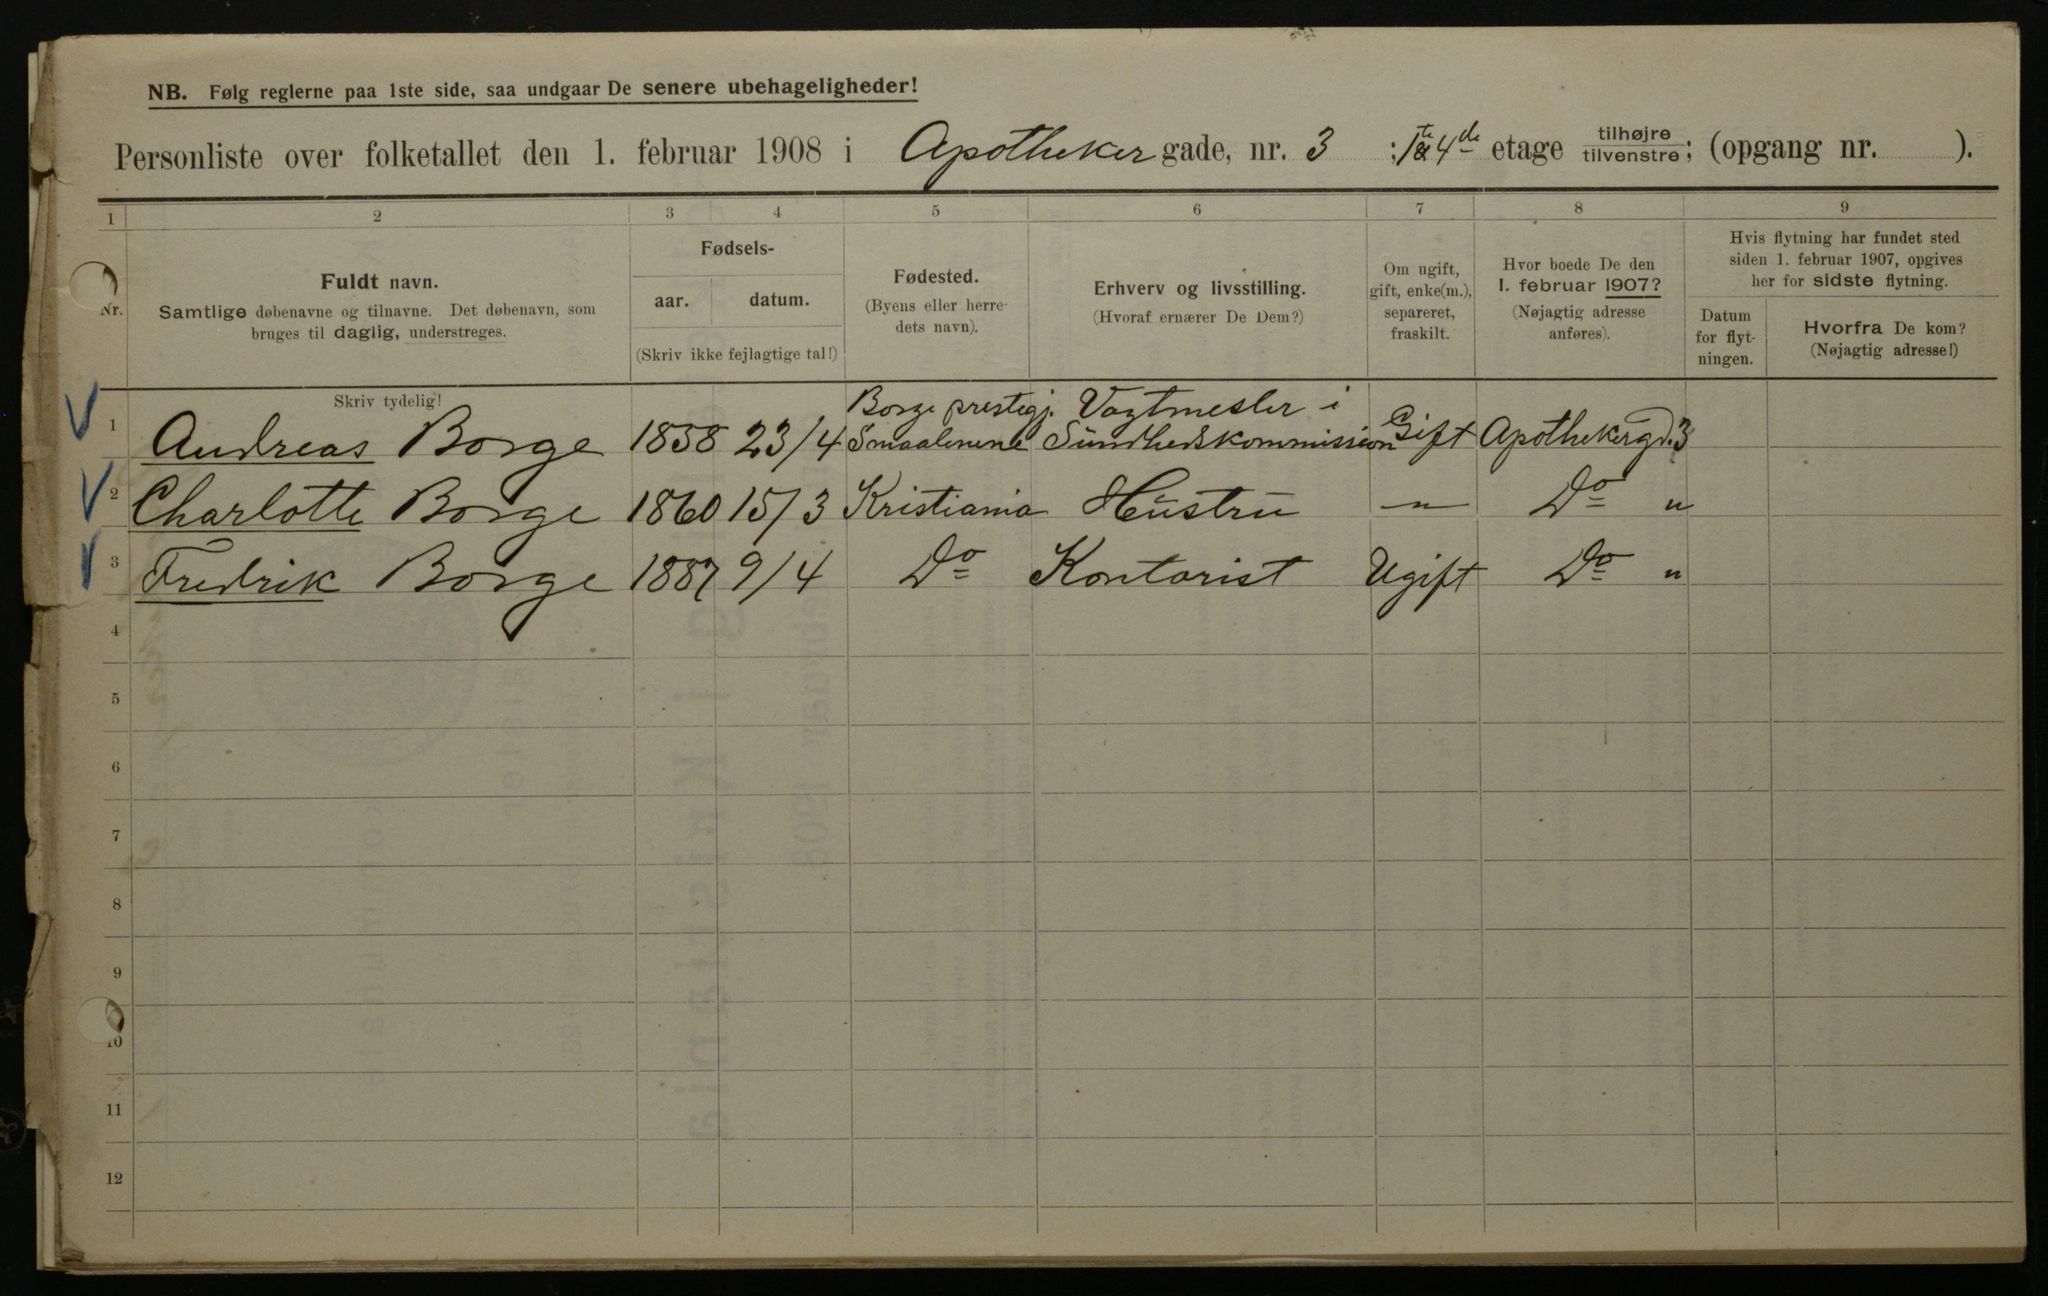 NB. Følg reglerne paa 1ste side, saa undgaar De senere ubehageligheder!
Personliste over folketallet den 1. februar 1908 i Apotheker gade, nr. 3 ; 1te & 4de etage tilhøjre / tilvenstre; (opgang nr. ).
1 2 3 4 5 6 7 8 9
Nr.
Fuldt navn.
Samtlige døbenavne og tilnavne. Det døbenavn, som
bruges til daglig, understreges.
Fødsels-
aar. datum.
(Skriv ikke fejlagtige tal!)
Fødested.
(Byens eller herre-
dets navn).
Erhverv og livsstilling.
(Hvoraf ernærer De Dem?)
Om ugift,
gift, enke(m.),
separeret,
fraskilt.
Hvor boede De den
1. februar 1907?
(Nøjagtig adresse
anføres).
Hvis flytning har fundet sted
siden 1. februar 1907, opgives
her for sidste flytning.
Datum
for flyt-
ningen.
Hvorfra De kom?
(Nøjagtig adresse!)
Skriv tydelig!
Borge prestegj. Vagtmester i
1 Andreas Borge 1858 23/4 Smaalenene Sundhedskommission Gift Apothekergd. 3
2 Charlotte Borge 1860 15/3 Kristiania Hustru " Do "
3 Fredrik Borge 1887 9/4 Do Kontorist Ugift Do "
4
5
6
7
8
9
10
11
12